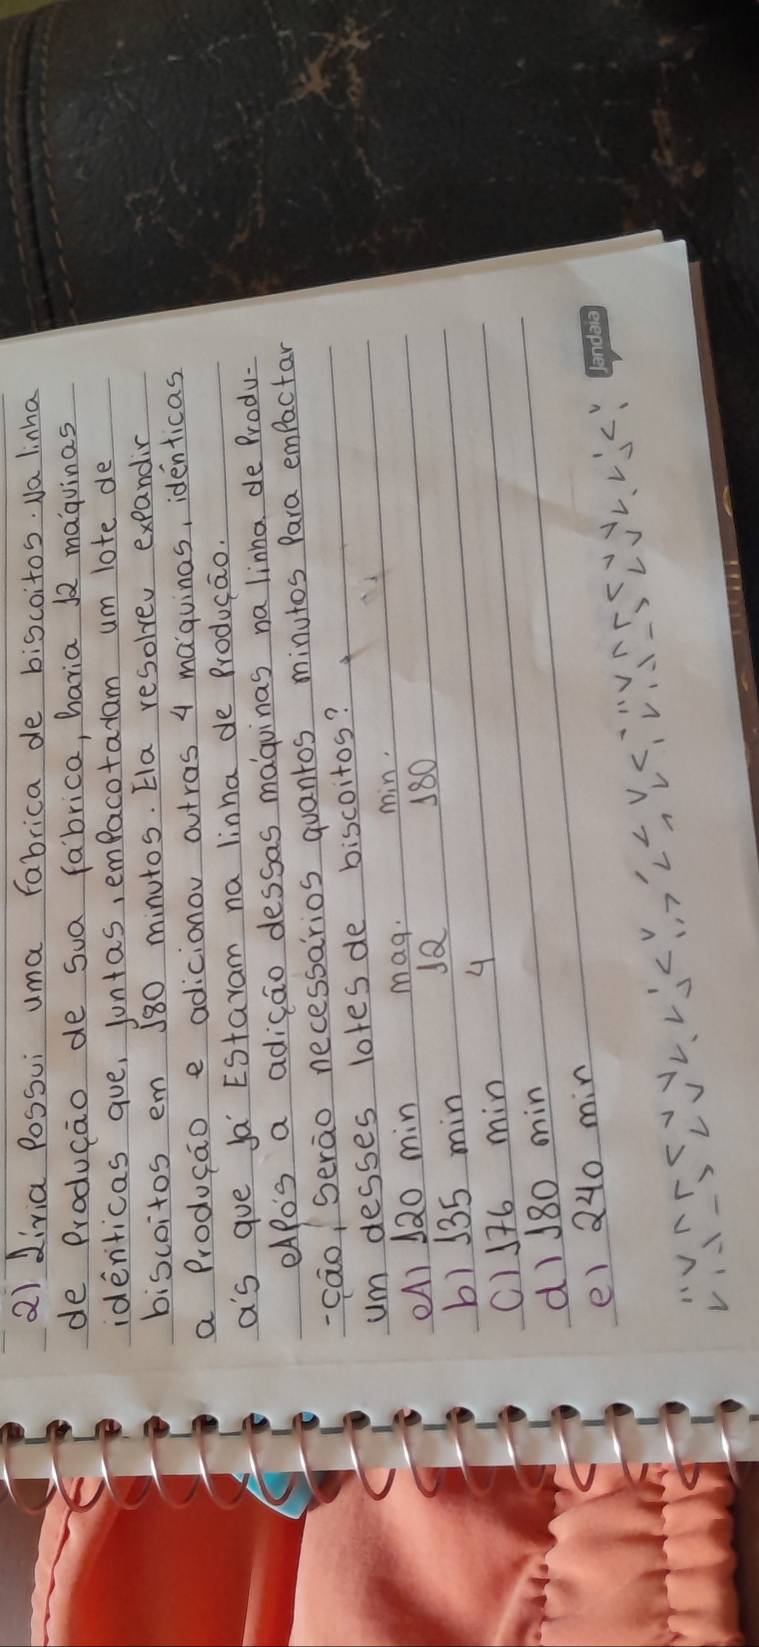 2) Lívia Possui uma fabrica de biscoitos. Na linha
de Produção de sua fábrica, havia 12 máquinas
idênticas que, juntas, empacotavam um lote de
biscoitos em 180 minutos. Ela resolveu expandir
a Produção e adicionou outras 4 máquinas, idênticas
a's que já Estavam na linha de Produção.
APós a adição dessas máquinas na linha de Produ-
-ção, Serão necessários quantos minutos Para empactar
um desses lotes de biscoitos?
A) 120 min mag. min.
b) 135 min 12 180
c) 176 min 4
d) 180 min
e) 240 min
Jandaia